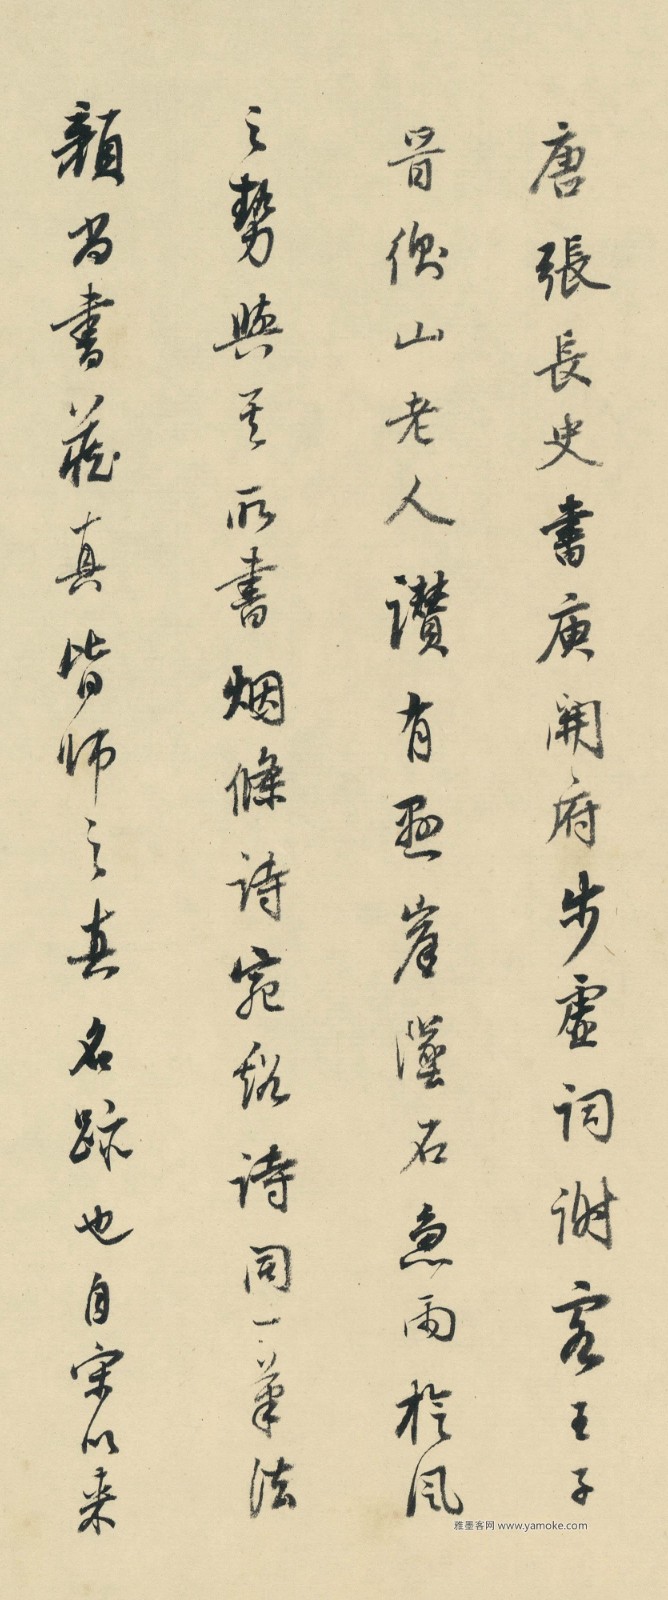 唐張長史書庾開府步虛詞謝客王子
晋衡山老人讃有懸崖墜石急雨旋風
之勢與其所書烟條詩宛谿詩同一筆法
顏尚書藏真皆師之真名跡也自宋以来
雅墨客网 www.yamoke.com